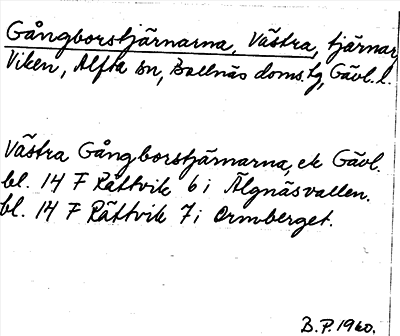 Gångborstjärnarna, Västra, tjärnar,
Viken, Alfta sn, Bollnäs doms.tg, Gävl.l.
Västra Gångborstjärnarna, ek Gävl.
bl. 14 F Rättvik 6 i Älgnäsvallen.
bl. 14 F Rättvik 7 i Ormberget.
B.P. 1960.